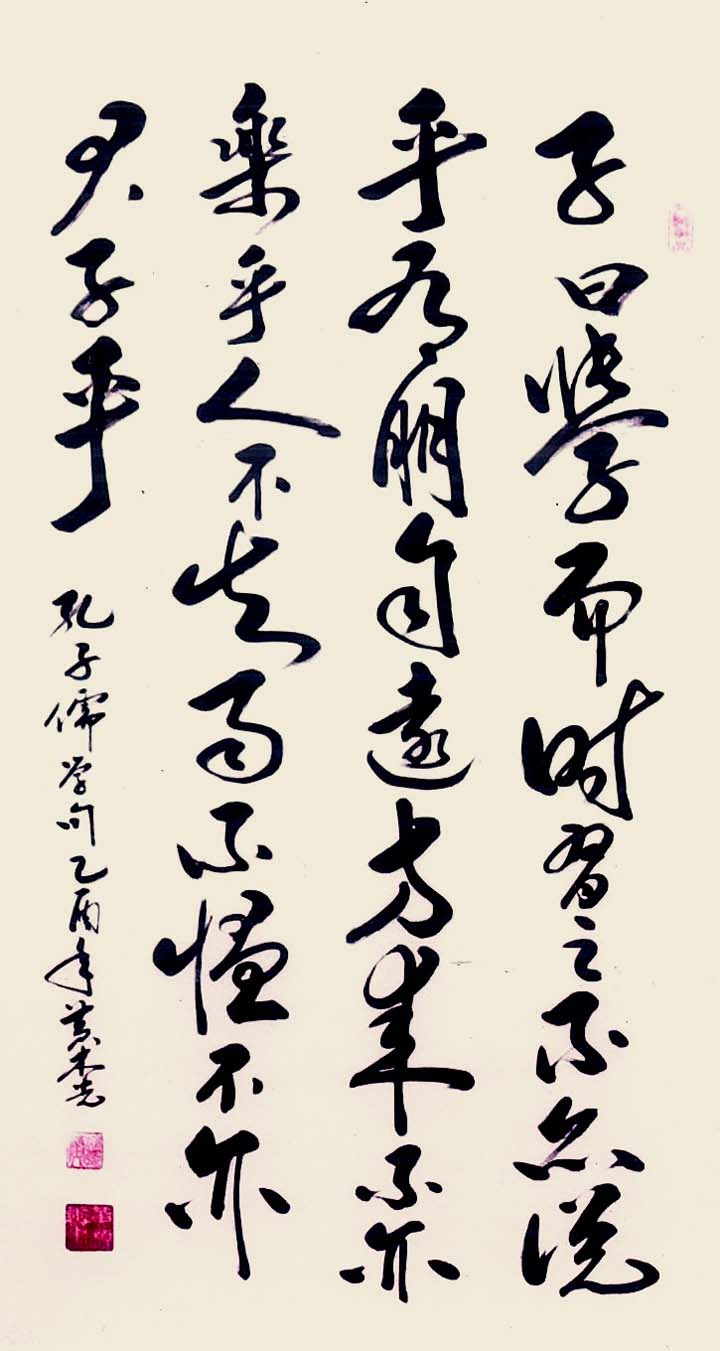 子曰學而时習之不亦说
乎有朋自遠方来不亦
樂乎人不知而不愠不亦
君子乎
孔子儒学句乙酉年黄光